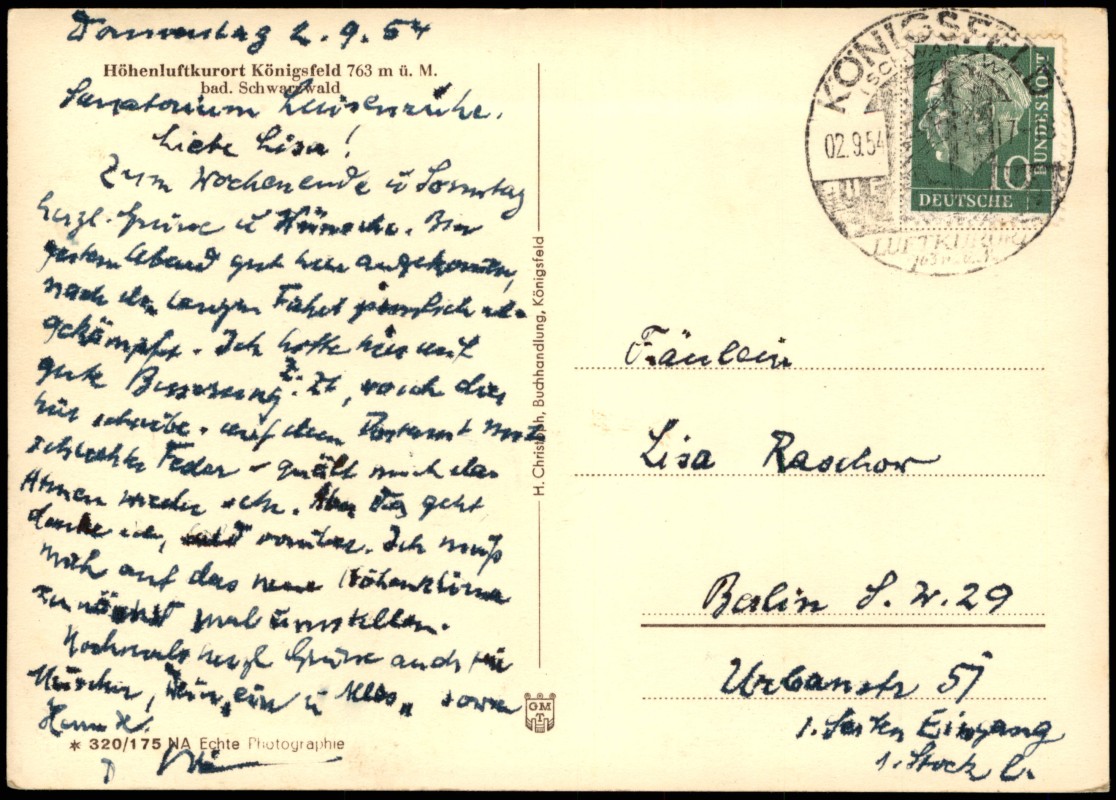 Donnerstag 2.9.54
Höhenluftkurort Königsfeld 763 m ü. M.
bad. Schwarzwald
Sanatorium Luisenruhe.
Liebe Lisa!
Zum Wochenende u Sonntag
herzl. Grüsse u Wünsche. Bin
gestern Abend gut hier angekommen,
nach der langen Fahrt ziemlich ab-
gekämpft. Ich hoffe hier auf
gute Besserung. Z. Zt, wo ich dies
hier schreibe - auf dem Postamt mit
schlechter Feder - quält mich das
Atmen wieder sehr. Aber das geht
denke ich, bald vorüber. Ich muß
mich auf das neue Höhenklima
zunächst mal umstellen.
Nochmals herzl Grüsse auch für
sowie
H. Christoph, Buchhandlung, Königsfeld
GM
* 320/175 NA Echte Photographie
KÖNIGSFELD
(SCHWARZW)
02.9.54
LUFTKURORT
763 m.ü.M.
10
BUNDESPOST
DEUTSCHE
Fräulein
Lisa Raschow
Berlin S.W.29
Urbanstr 51
1. Seiten Eingang
1. Stock l.